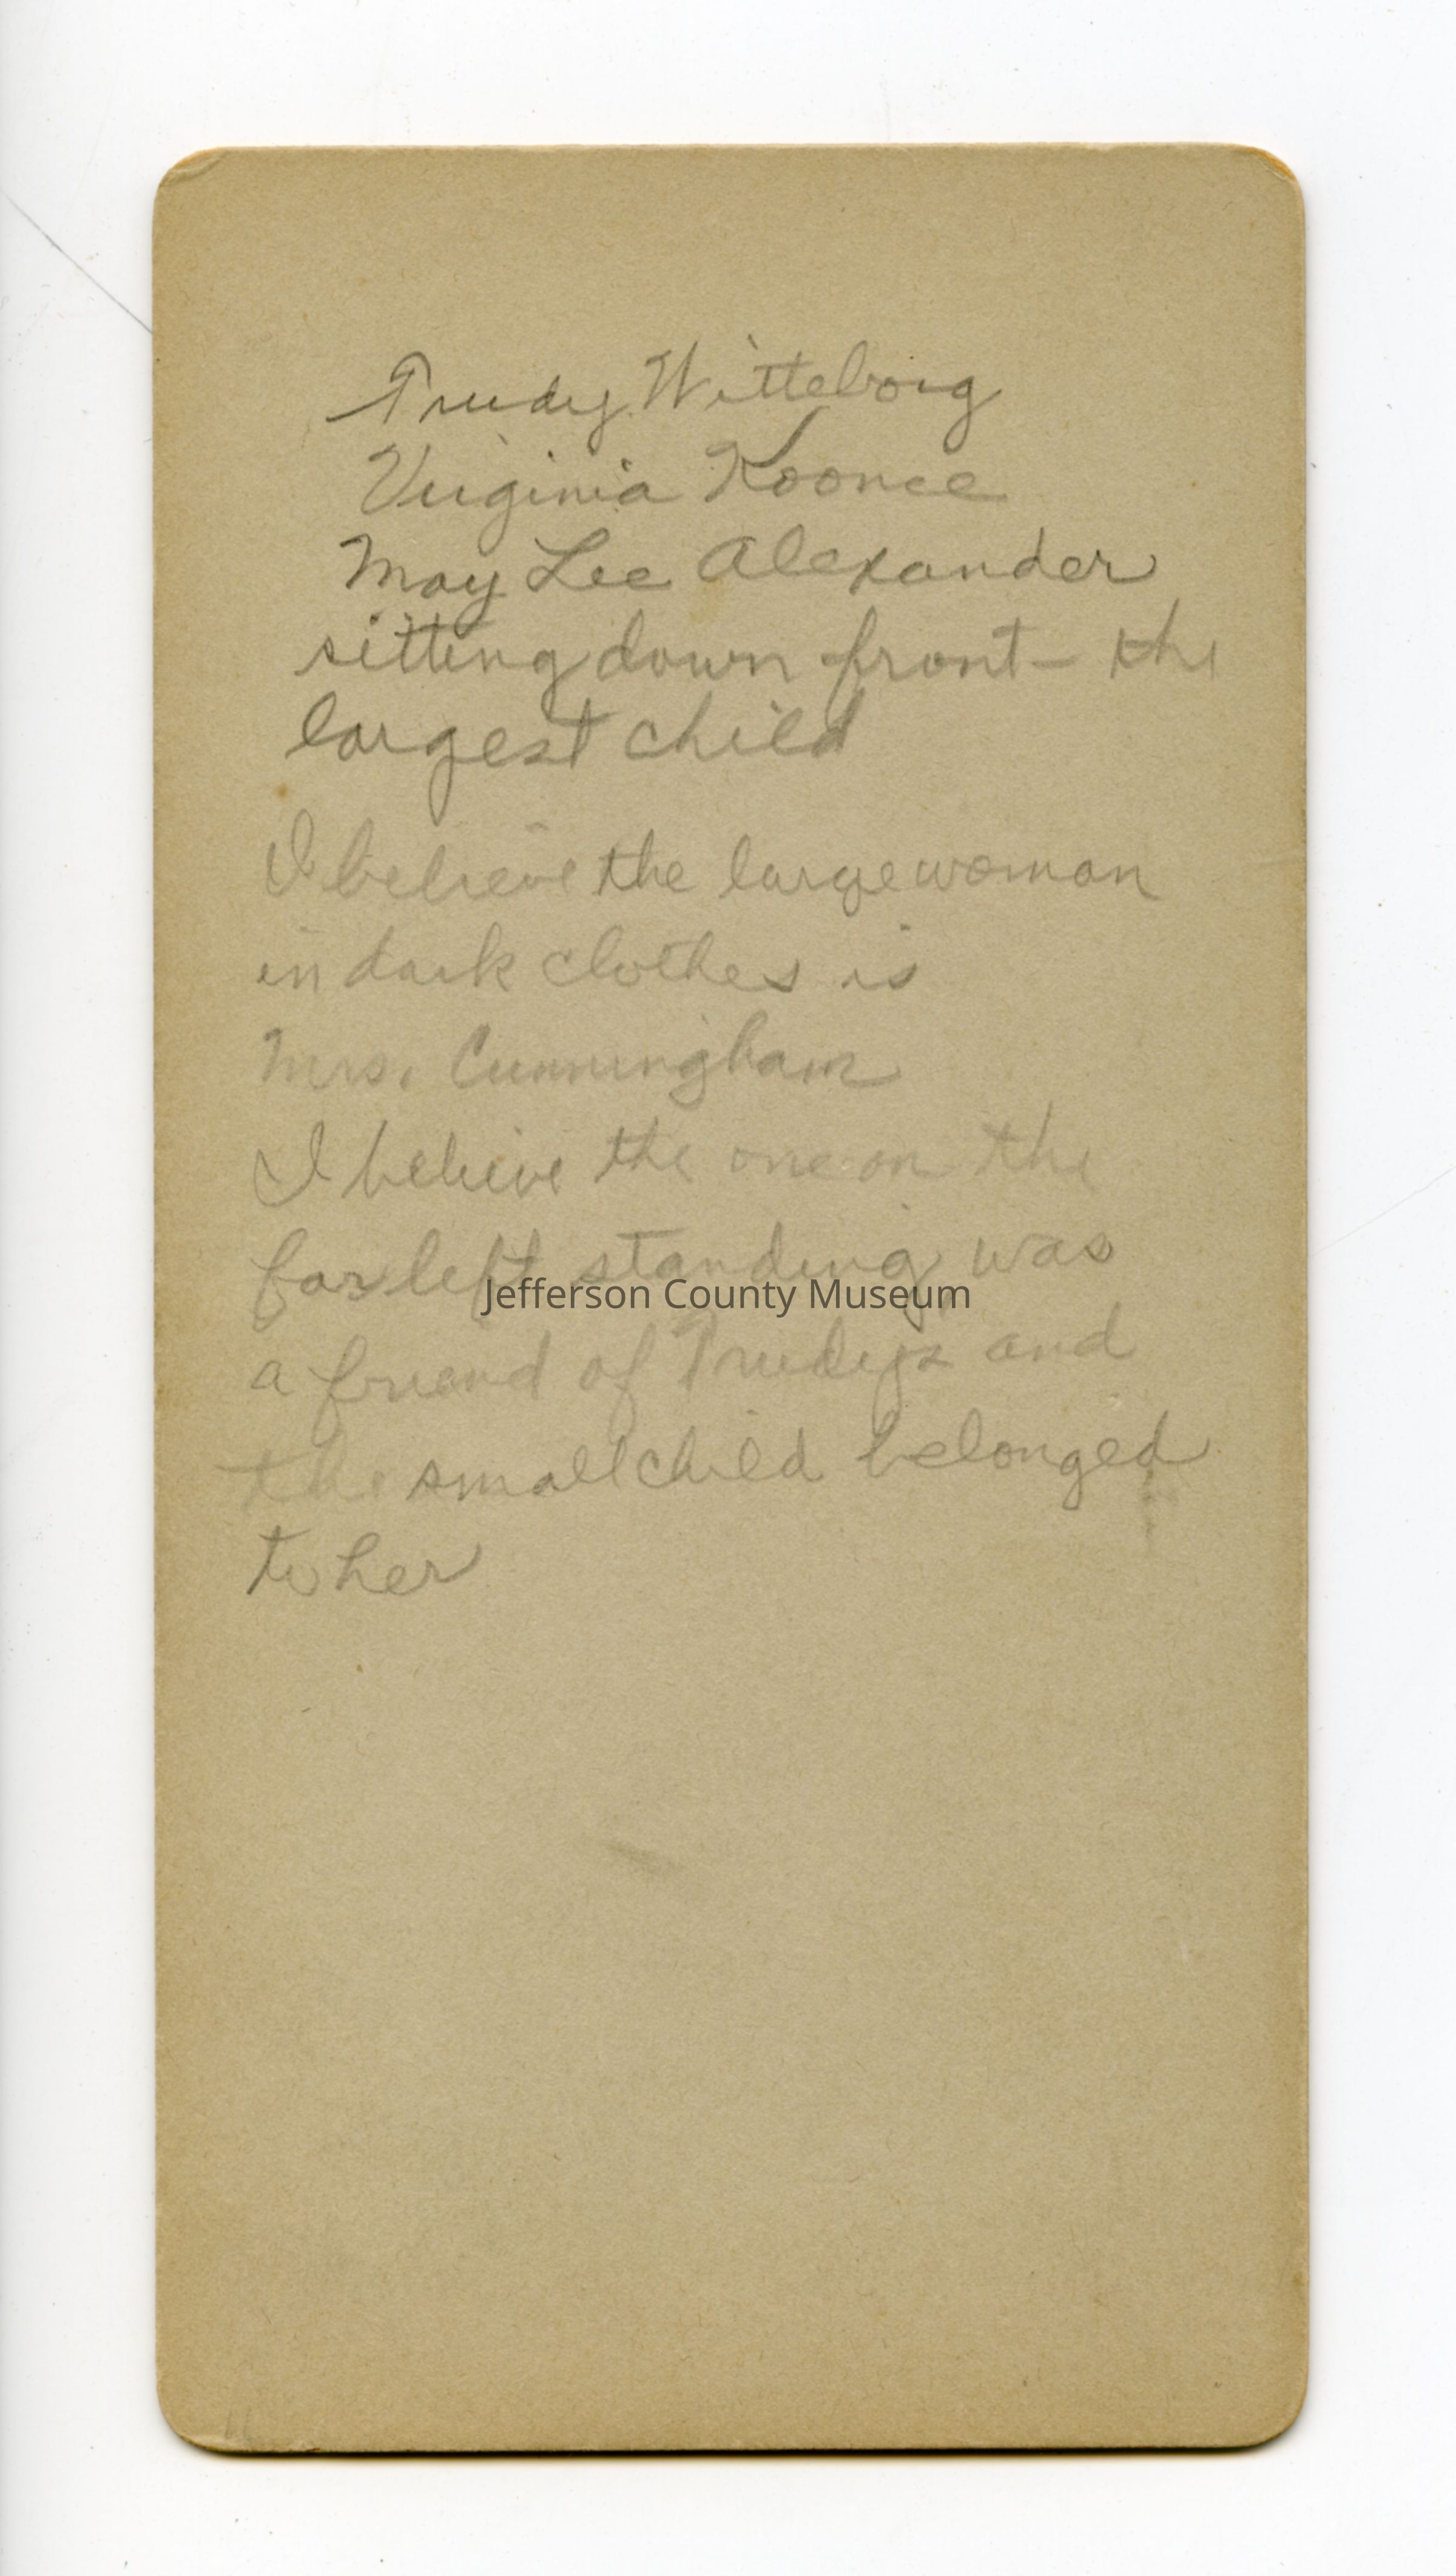 Trudy Witteborg
Virginia Koonce
May Lee Alexander
sitting down front – the
largest child
I believe the large woman
in dark clothes is
Mrs. Cunningham
I believe the one on the
far left standing was
Jefferson County Museum
a friend of Trudys and
the small child belonged
to her